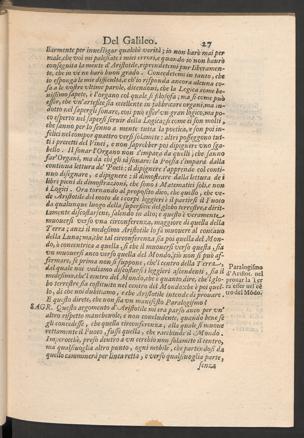 Del Galileo. 27
liarmente per inuestigar qualche verità; io non harò mai per
male, che voi mi palesiate i miei errori, quando io non haurò
conseguita la mente d'Aristotile, riprendetemi pur liberamen-
te, che io vene harò buon grado. Concedetemi in tanto, che
io esponga le mie difficultà, e ch'io risponda ancora alcuna co-
sa alle vostre vltime parole, dicendoui, che la Logica come be-
nissimo sapete, è l'organo col quale si filosofa; ma si come può
esser, che vn'artefice sia eccellente in fabbricare organi, ma in-
dotto nel sapergli sonare, così può esser vn gran logico, ma po-
co esperto nel sapersi seruir della Logica; si come ci son molti
che sanno per lo senno a mente tutta la poetica, e son poi infe-
lici nel compor quattro versi solamente; altri posseggono tut-
ti i precetti del Vinci, e non saprebber poi dipignere vno sga-
bello. Il sonar l'Organo non s'impara da quelli, che sanno
far Organi, ma da chi gli sà sonare: la Poesia s'impara dalla
continua lettura de' Poeti: il dipignere s'apprende col conti-
nuo disegnare, e dipignere: il dimostrare dalla lettura de i
libri pieni di dimostrazioni, che sono i Matematici soli, e non
i Logici. Ora tornando al proposito dico, che quello, che ve-
de Aristotile del moto de i corpi leggieri è il partirsi il Fuoco
da qualunque luogo della superficie del globo terrestre, e diret-
tamente discostarsene, salendo in alto; e questo è veramente
muouersi verso vna circonferenza, maggiore di quella della
Terra; anzi il medesimo Aristotile lo fà muouere al concauo
della Luna; ma, che tal circonferenza sia poi quella del Mon-
do, ò concentrica a quella, sì che il muouersi verso questa, sia
vn muouersi anco verso quella del Mondo, ciò non si può af-
fermare, se prima non si suppone, che'l centro della Terra,
dal quale noi vediamo discostarsi i leggieri ascendenti, sia il
medesimo, che'l centro del Mondo, che è quanto dire, che'l glo-
bo terrestre sia costituito nel centro del Mondo: che è poi quel-
lo, di che noi dubitiamo, e che Aristotile intende di prouare.
E questo direte, che non sia vn manifesto Paralogismo?
Paralogismo
d'Aristot. nel
SAGR. Questo argomento d'Aristotile mi era parso anco per vn'
altro rispetto manchevole, e non concludente, quando bene se
gli concedesse, che quella circonferenza, alla quale si muoue
rettamente il Fuoco, fusse quella, che racchiude il Mondo.
Imperocchè, preso dentro a vn cerchio non solamente il centro,
ma qualsiuoglia altro punto, ogni mobile, che partendosi da
quello camminerà per linea retta, e verso qualsiuoglia parte,
senza